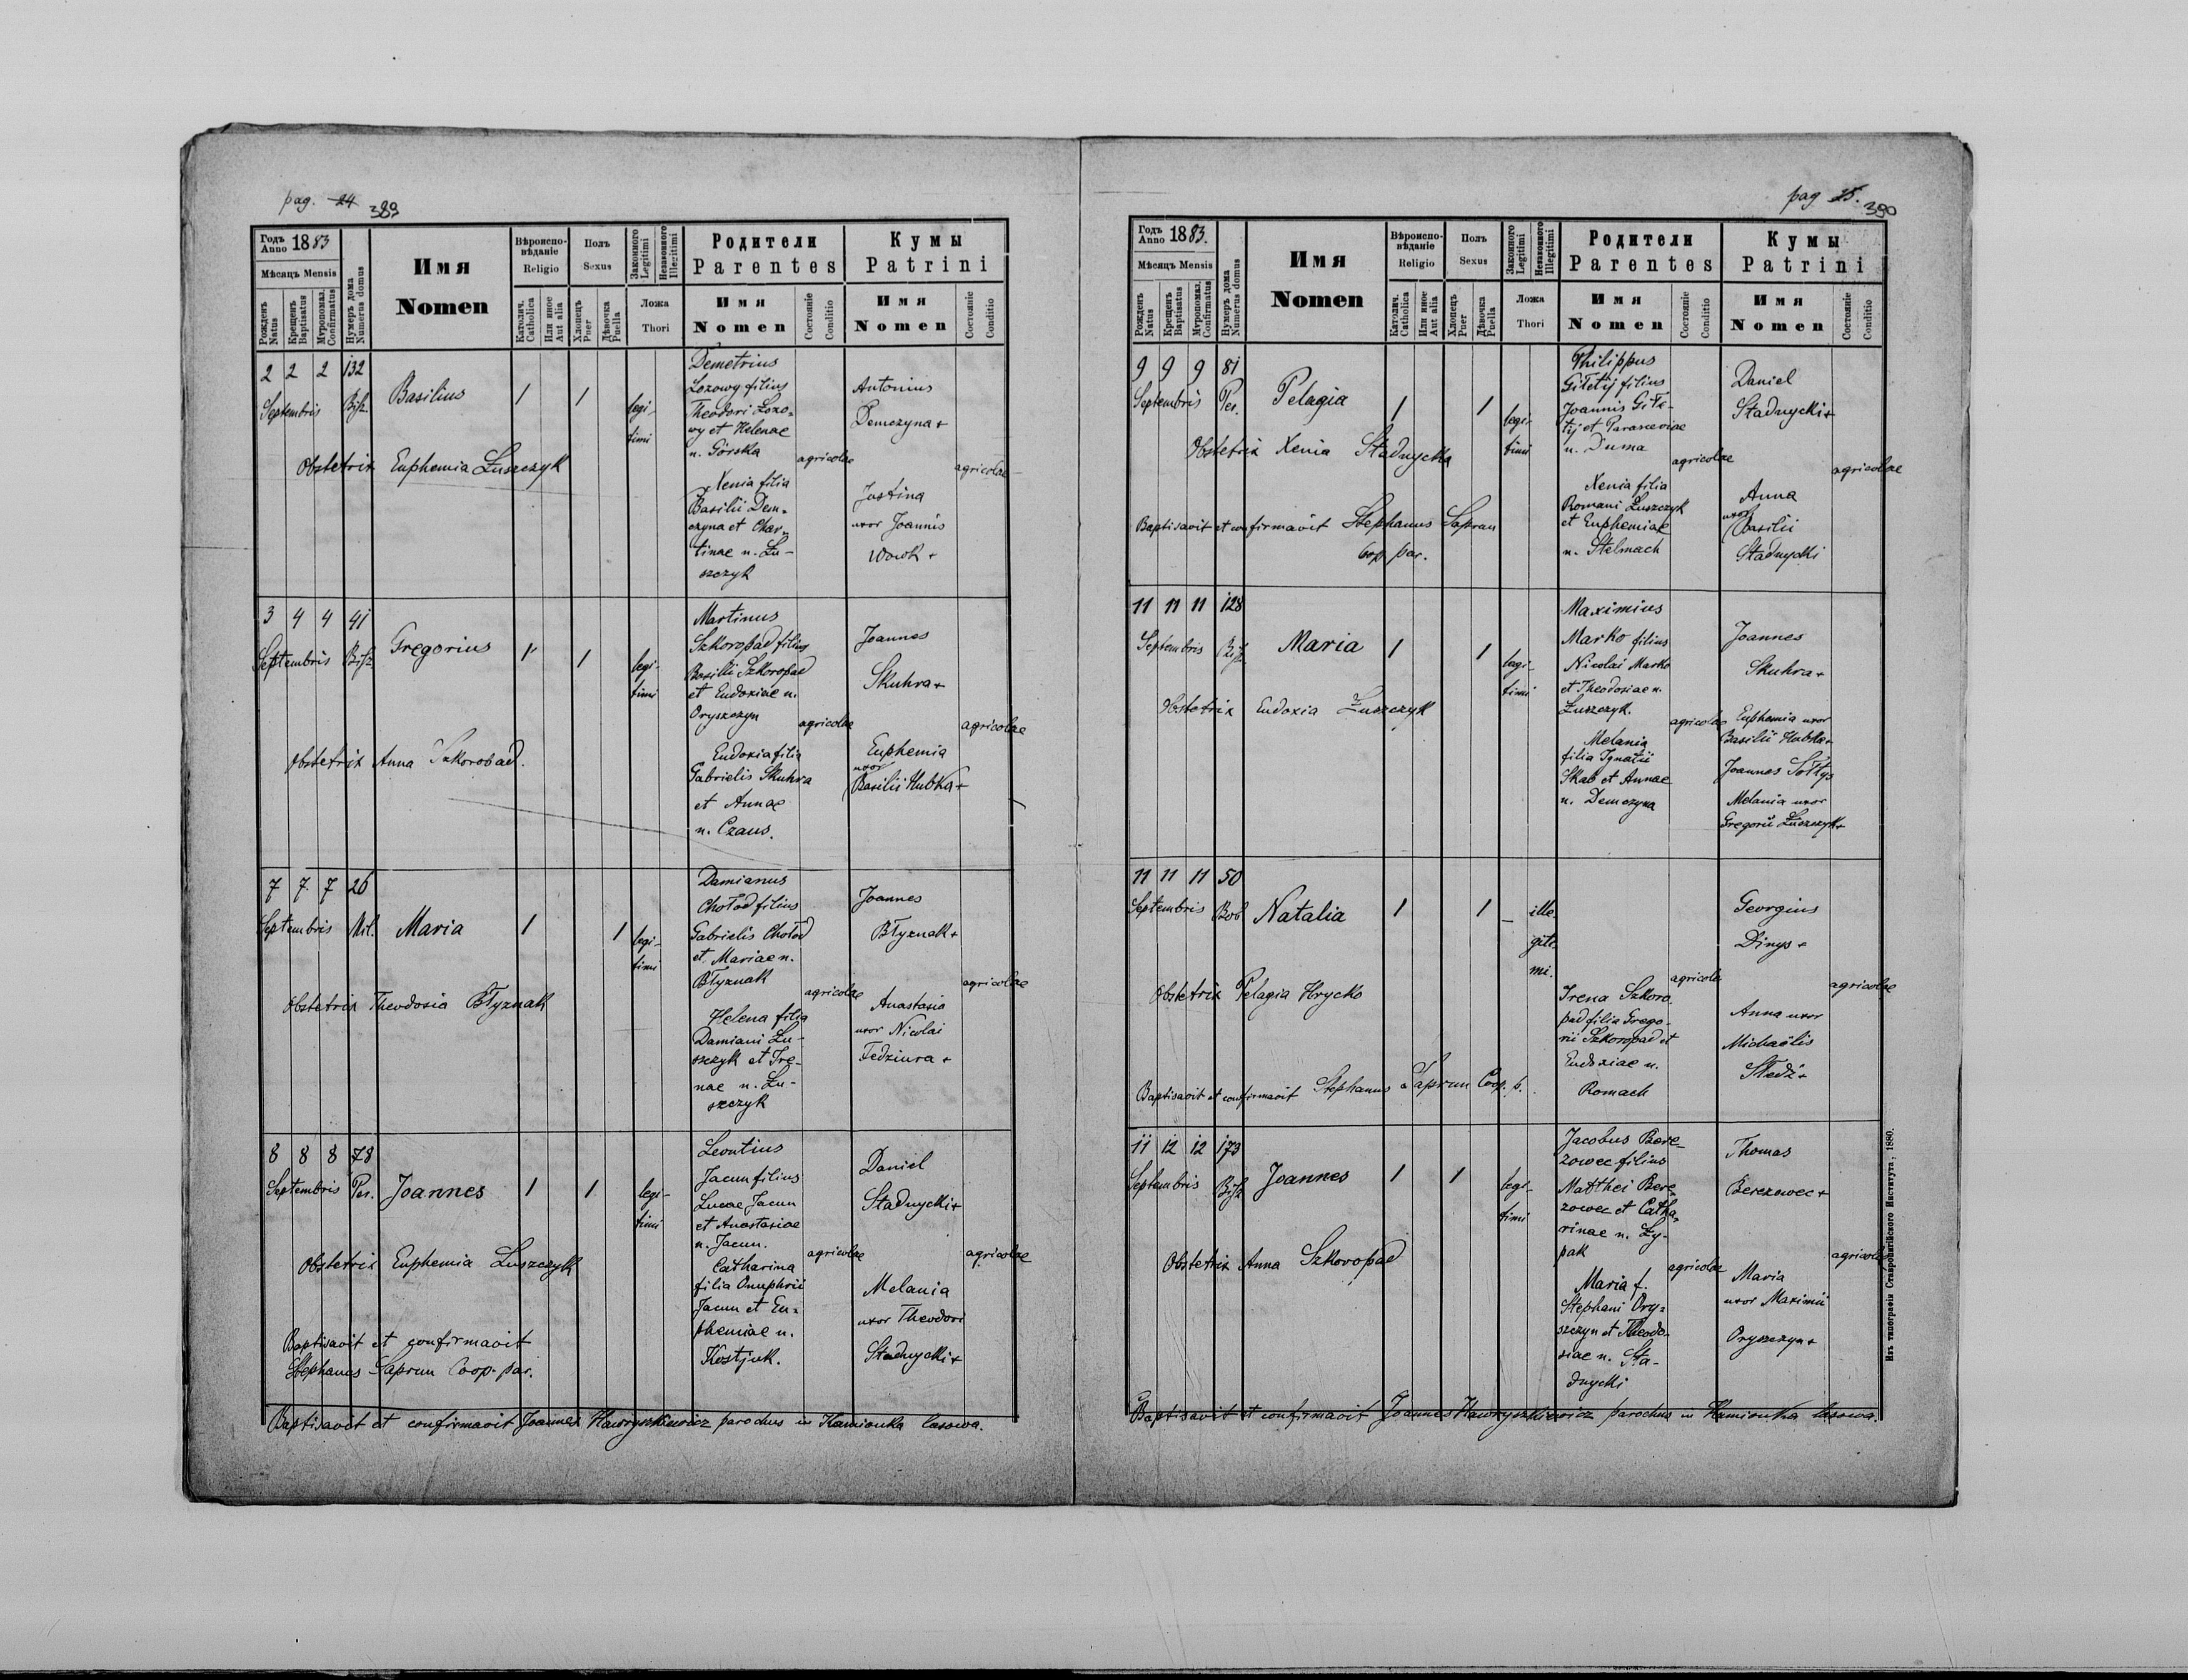 pag. 24 389
Годъ Anno 1883
Мѣсяцъ Mensis
Рожденъ Natus
Крещенъ Baptisatus
Мѵропомаз. Confirmatus
Нумеръ дома Numerus domus
Имя Nomen
Вѣроиспо-
вѣданіе
Religio
Католич. Catholica
Или иное Aut alia
Полъ
Sexus
Хлопецъ Puer
Дѣвочка Puella
Законного Legitimi
Незаконного Illegitimi
Ложа
Thori
Родители
Parentes
Имя
Nomen
Состояніе Conditio
Кумы
Patrini
Имя
Nomen
Состояніе Conditio
2 2 2 132
Septembris Bisz.
Basilius
1 1
legi-
timi
Demetrius
Lozowy filius
Theodori Lozo-
wy et Helenae
n. Górska
agricolae
Xenia filia
Basilii Dem-
czyna et Char-
tinae n. Łu-
szczyk
Antonius
Demczyna +
Justina
uxor Joannis
Wowk +
agricolae
Obstetrix Euphemia Łuszczyk
3 4 4 41
Septembris Bisz
Gregorius
1 1
legi-
timi
Martinus
Szkoropad filius
Basilii Szkoropad
et Eudoxiae n.
Oryszczyn
agricolae
Eudoxia filia
Gabrielis Skuhra
et Annae
n. Czaus.
Joannes
Skuhra +
Euphemia
uxor
Basilii Hubka +
agricolae
Obstetrix Anna Szkoropad.
7 7 7 26
Septembris Mil.
Maria
1 1
legi-
timi
Damianus
Chołod filius
Gabrielis Chołod
et Mariae n.
Błyznak
agricolae
Helena filia
Damiani Łu-
szczyk et Ire-
nae n. Łu-
szczyk
Joannes
Błyznak +
Anastasia
uxor Nicolai
Fedziura +
agricolae
Obstetrix Theodosia Błyznak
8 8 8 78
Septembris Per.
Joannes
1 1
legi-
timi
Leontius
Jacun filius
Lucae Jacun
et Anastasiae
n. Jacun.
agricolae
Catharina
filia Onuphrii
Jacun et Eu-
phemiae n.
Kostjuk.
Daniel
Stadnycki +
Melania
uxor Theodori
Stadnycki +
agricolae
Obstetrix Euphemia Łuszczyk
Baptisavit et confirmavit
Stephanus Saprun Coop. par.
Baptisavit et confirmavit Joannes Hawryszkiewicz parochus in Kamionka lasowa.
pag 25. 390
Годъ Anno 1883.
Мѣсяцъ Mensis
Рожденъ Natus
Крещенъ Baptisatus
Мѵропомаз. Confirmatus
Нумеръ дома Numerus domus
Имя
Nomen
Вѣроиспо-
вѣданіе
Religio
Католич. Catholica
Или иное Aut alia
Полъ
Sexus
Хлопецъ Puer
Дѣвочка Puella
Законного Legitimi
Незаконного Illegitimi
Ложа
Thori
Родители
Parentes
Имя
Nomen
Состояніе Conditio
Кумы
Patrini
Имя
Nomen
Состояніе Conditio
9 9 9 81
Septembris Per.
Pelagia
1 1
legi-
timi
Philippus
Giłetij filius
Joannis Giłe-
tij et Parasceviae
n. Duma
agricolae
Xenia filia
Romani Łuszczyk
et Euphemiae
n. Stelmach
Daniel
Stadnycki +
Anna
uxor
Basilii
Stadnycki
agricolae
Obstetrix Xenia Stadnycka
Baptisavit et confirmavit Stephanus Saprun
Coop par.
11 11 11 128
Septembris Bisz
Maria
1 1
legi-
timi
Maximius
Marko filius
Nicolai Marko
et Theodosiae n.
Łuszczyk.
agricolae
Melania
filia Ignatii
Skab et Annae
n. Demczyna
Joannes
Skuhra +
Euphemia uxor
Basilii Hubka +
Joannes Sołtys
Melania uxor
Gregorii Łuszczyk +
Obstetrix Eudoxia Łuszczyk
11 11 11 50
Septembris Bob
Natalia
1 1
ille-
giti-
mi.
Irena Szkoro-
pad filia Grego-
rii Szkoropad et
Eudoxiae n.
Romach
agricolae
Georgius
Dinys +
Anna uxor
Michaëlis
Śledź +
agricolae
Obstetrix Pelagia Hrycko
Baptisavit et confirmavit Stephanus Saprun Coop. p.
11 12 12 173
Septembris Bisz
Joannes
1 1
legi-
timi
Jacobus Bere-
zowec filius
Matthei Bere-
zowec et Catha-
rinae n. Ły-
pak
agricolae
Maria f.
Stephani Ory-
szczyn et Theodo-
siae n. Sta-
dnycki
Thomas
Berezowec +
Maria
uxor Maximii
Oryszczyn +
agricolae
Obstetrix Anna Szkoropad
Baptisavit et confirmavit Joannes Hawryszkiewicz parochus in Kamionka lasowa.
Изъ типографіи Ставропигійского Института, 1880.